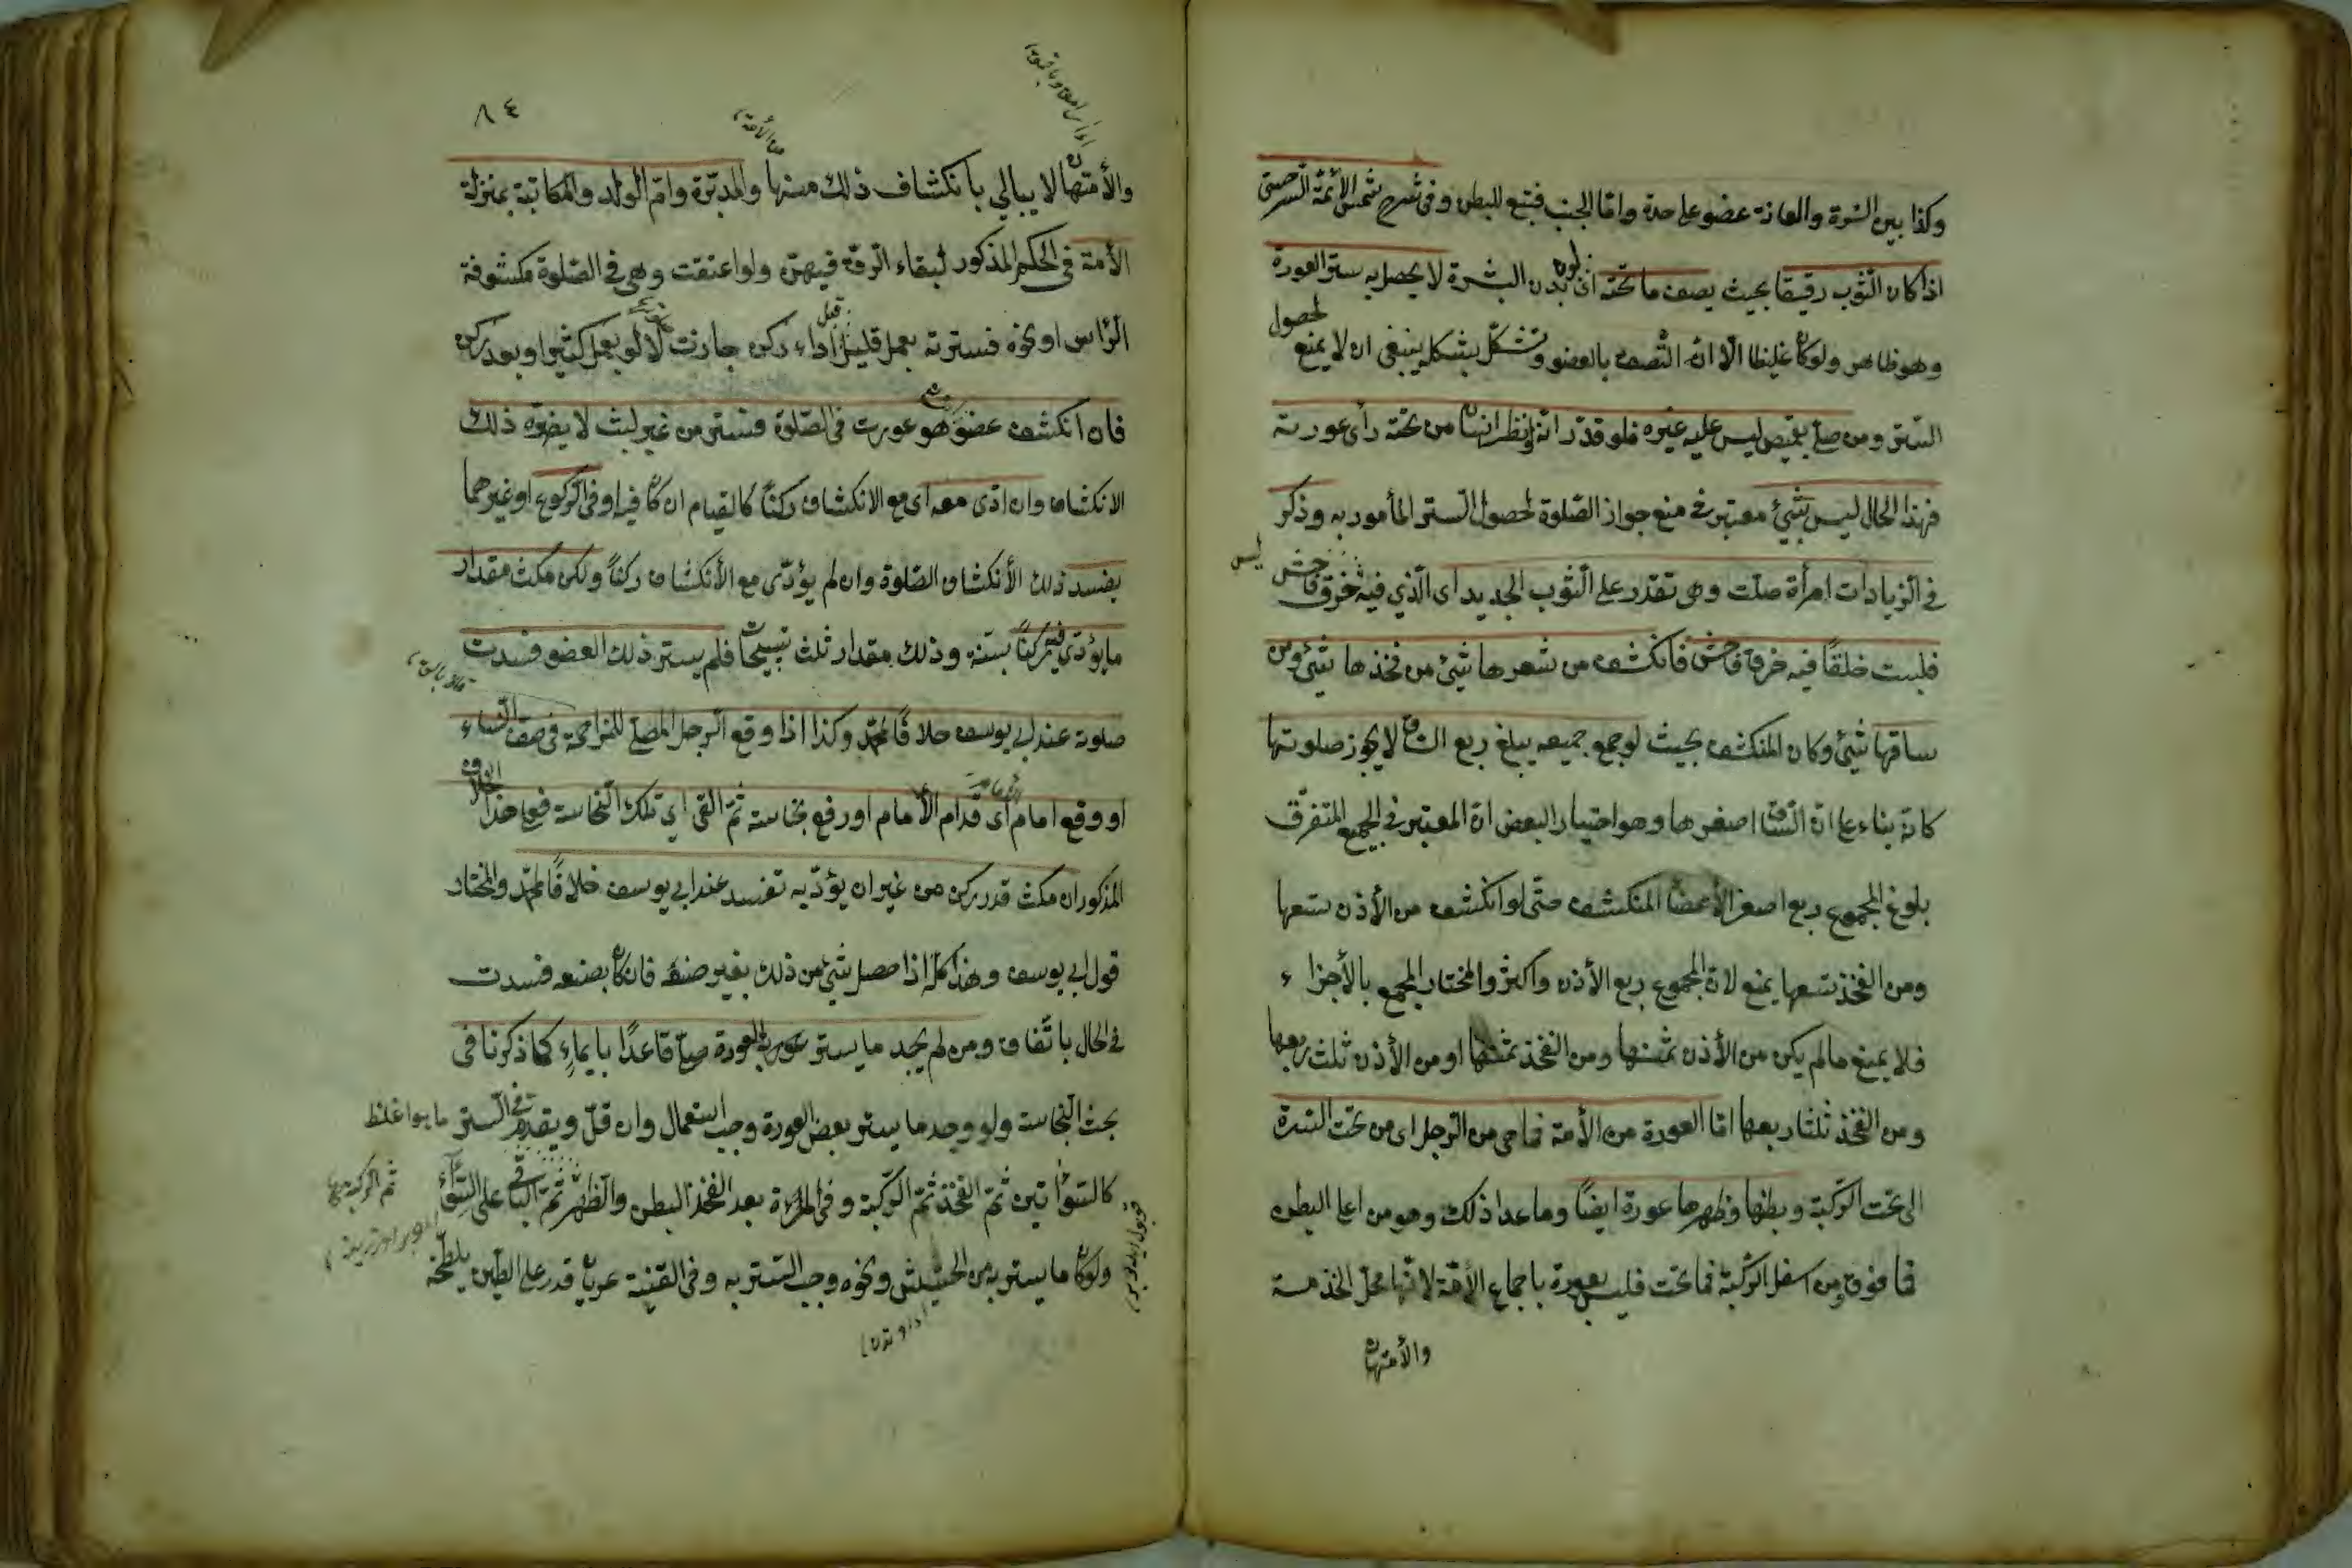 وكذا بين السّرة والعانة عضو على حدة وامّا الجنب فتبع للبطن وفى شرح شمس الأئمّة السّرخسى
اذا كان الثّوب رقيقا بحيث يصف ما تحته اى لون بدن البشرة لا يحصل به ستر العورة
وهو ظاهر ولو كان غليظا الّا انّه التصق بالعضو وتشكّل بشكله ينبغى ان لا يمنع لحصول
السّتر ومن صلّى بقميص ليس عليه غيره فلو قدّر انّه نظر انسان من تحته رأى عورته
فهذا الحال ليس بشئ معتبر فى منع جواز الصّلوة لحصول السّتر المأمور به وذكر
فى الزّيادات امرأة صلّت وهى تقدر على الثّوب الجديد اى الّذي ليس فيه خرق فاحش
فلبست خلقًا فيه خرق فاحش فانكشف من شعرها شئ من فخذها شئ ومن
ساقها شئ وكان المنكشف بحيث لو جمع جميعه يبلغ ربع السّاق لا يجوز صلوتها
كانّه بناء على انّ السّاق اصغرها وهو اختيار البعض انّ المعتبر فى الجمع المتفرّق
بلوغ المجموع ربع اصغر الأعضاء المنكشف حتّى لو انكشف من الأذن تسعها
ومن الفخذ تسعها يمنع لانّ المجموع ربع الأذن واكثر والمختار الجمع بالأجزاء
فلا يمنع مالم يكن من الأذن ثمنها ومن الفخذ ثمنها او من الأذن ثلث ربعها
ومن الفخذ ثلثا ربعها امّا العورة من الأمة فما هى من الرّجل اى من تحت السّرة
الى تحت الرّكبة وبطنها وظهرها عورة ايضًا وما عدا ذلك وهو من اعلى البطن
فما فوق ومن اسفل الرّكبة فما تحت فليس بعورة باجماع الأمّة لانّها محلّ الخدمة
والأمتهان
٨٤
والأمتهان لا يبالي بانكشاف ذلك منها والمدبّرة وامّ الولد والمكاتبة بمنزلة
الأمة فى الحكم المذكور لبقاء الرّق فيهنّ ولو اعتقت وهى فى الصّلوة مكشوفة
الرّأس او نحوه فسترته بعمل قليل قبل اداء ركن جازت لا لو بعمل كثير او بعد ركن
فان انكشف عضو هو عورت فى الصّلوة فستر من غير لبث لا يضرّه ذلك
الانكشاف وان ادّى معه اى مع الانكشاف ركنًا كالقيام ان كان فيه او فى الرّكوع او غيرهما
يفسد ذلك الأنكشاف الصّلوة وان لم يؤدّى مع الأنكشاف ركنًا ولكن مكث مقدار
ما يؤدّى فيه ركنًا بسنّة وذلك مقدار ثلث تسبيحات فلم يستر ذلك العضو فسدت
صلوته عند ابى يوسف خلافًا لمحمّد وكذا اذا وقع الرّجل المصلّى للمزاحمة فى صفّ النّساء
او وقع امام اى قدام الأمام او رفع نجاسة ثمّ القى اى تلك النّجاسة فعلى هذا الخلاف
المذكور ان مكث قدر ركن من غير ان يؤدّيه تفسد عند ابى يوسف خلافًا لمحمّد والمختار
قول ابى يوسف وهذا كلّه اذا حصل شئ من ذلك بغير صنعه فان كان بصنعه فسدت
فى الحال باتّفاق ومن لم يجد ما يستر به العورة صلّى قاعدًا بايماءٍ كما ذكرنا فى
بحث النّجاسة ولو وجد ما يستر بعض العورة وجب استعمال وان قلّ ويقدّم فى السّتر ما هو اغلظ
كالسّوأتين ثمّ الفخذ ثمّ الرّكبة وفى المرأة بعد الفخذ البطن والظّهر ثمّ الرّكبة ثمّ الباقى على السّواء
ولو كان ما يستر به من الحشيش ونحوه وجب السّتر به وفى القنية عريان قدر على الطّين يلطّخه